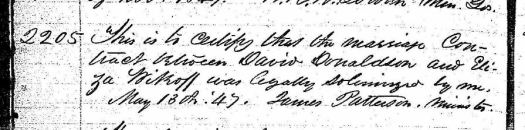 2205 This is to certify that the marriage Con-
tract between David Donaldson and Eli-
za Wikoff was legally solemnized by me.
May 13th. '47. James Patterson. Minister